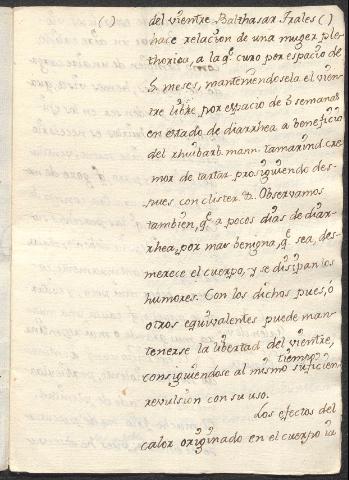 ( ) del vientre. Balthasar Trales ( )
hace relacion de una muger ple-
thorica, a la qe. curo por espacio de
5 meses, manteniendosela el vien-
tre libre por espacio de 5 semanas
en estado de diarrhea a beneficio
del rhuibarb. mann. tamarind. cre
mor de tartar. prosiguiendo des-
pues con clister &. Observamos
tambien, qe. a pocos dias de diar-
rhea, por mas benigna, qe. sea, des-
merece el cuerpo, y se disipan los
humores. Con los dichos pues, ó
otros equivalentes puede man-
tenerse la libertad del vientre,
consiguiendose al mismo tiempo suficien.
revulsion con su uso.
Los efectos del
calor originado en el cuerpo